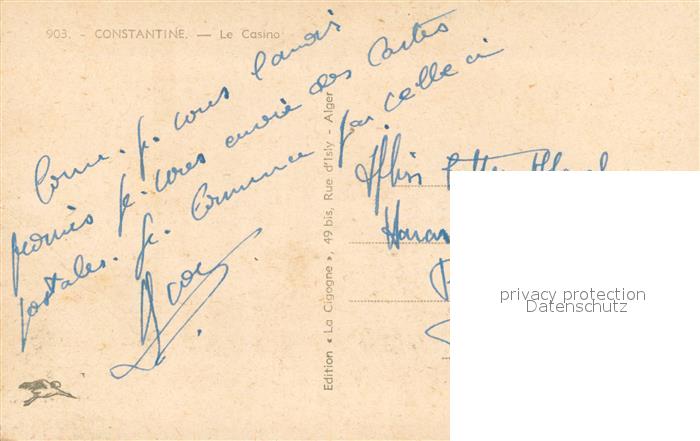 903. - CONSTANTINE. — Le Casino
Come. je. vous l'avais
promis je. vous envoie des Cartes
postales. je. Commence par. celle ci
Edition « La Cigogne », 49 bis, Rue d'Isly - Alger
privacy protection
Datenschutz